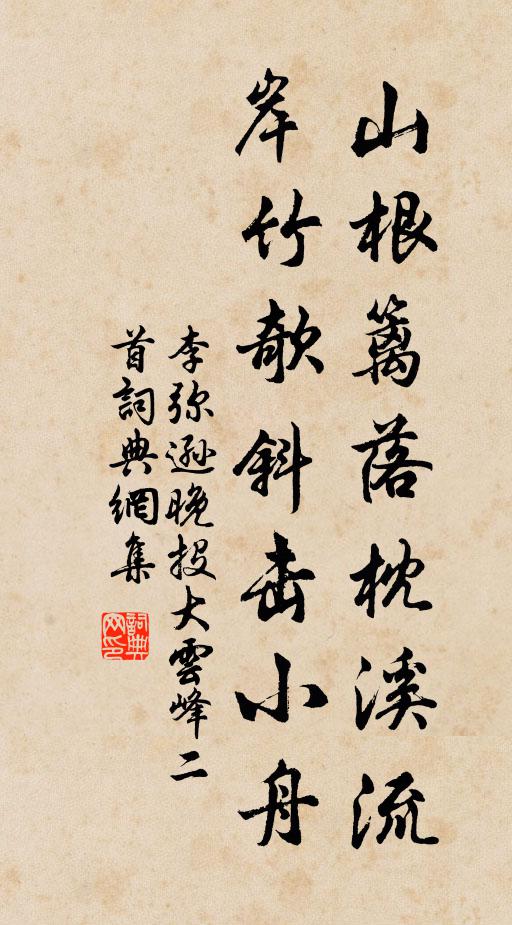 山根篱落枕溪流
岸竹欹斜击小舟
李弥逊晚投大雲峰二
首詞典網集
詞典
网印